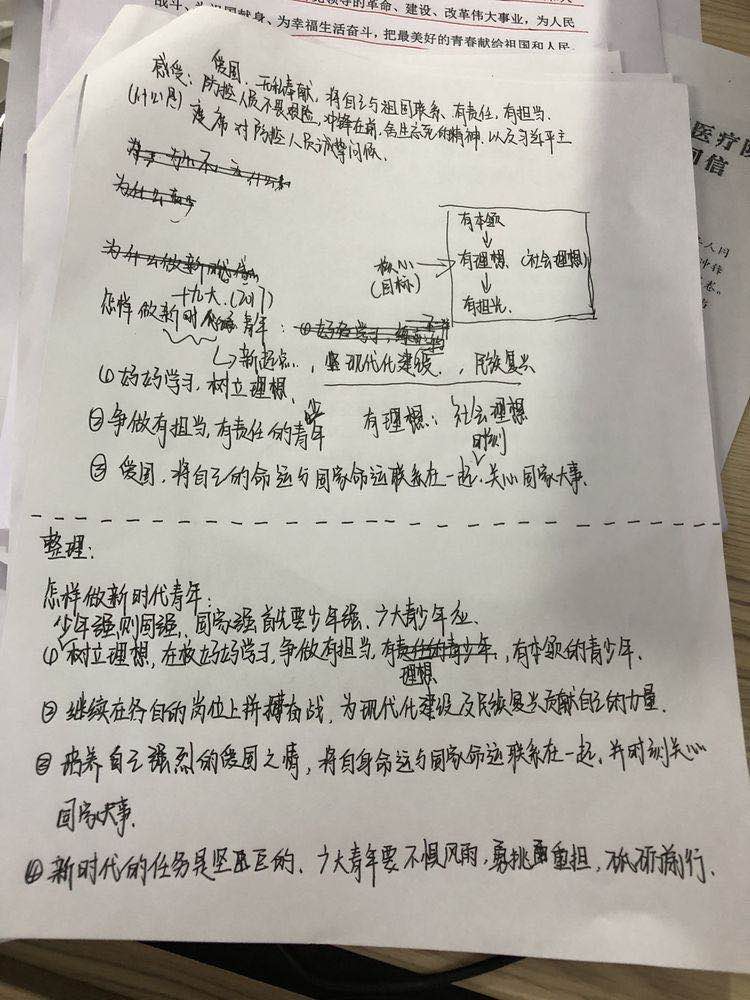 领导的革命、建设、改革伟大事业，为人民
战斗、为祖国献身、为幸福生活奋斗，把最美好的青春献给祖国和人民
医疗队
回信
感受：爱国，无私奉献，将自己与祖国联系，有责任，有担当．
防控人员不畏艰险，冲锋在前，舍生忘死的精神．以及习近平主
席对防控人员诚挚问候．
为什么
为什么做新时代
有本领
↓
核心→有理想（社会理想）
(目标)
↓
有担当．
十九大．(2017)
怎样做新时代青年：①好好学习，
↳新起点．，坚现代化建设．，民族复兴
①好好学习，树立理想．
②争做有担当，有责任的青少年
有理想：社会理想
③爱国，将自己的命运与国家命运联系在一起，时刻关心国家大事．
整理：
怎样做新时代青年：
少年强则国强，国家强首先要少年强、广大青少年应．
①树立理想，在校好好学习，争做有担当，有责任的青少年．理想，有本领的青少年．
②继续在各自的岗位上拼搏奋战，为现代化建设及民族复兴贡献自己的力量．
③培养自己强烈的爱国之情，将自身命运与国家命运联系在一起、并时刻关心
国家大事．
④新时代的任务是坚巨的、广大青年要不惧风雨，勇挑重担，砥砺前行．